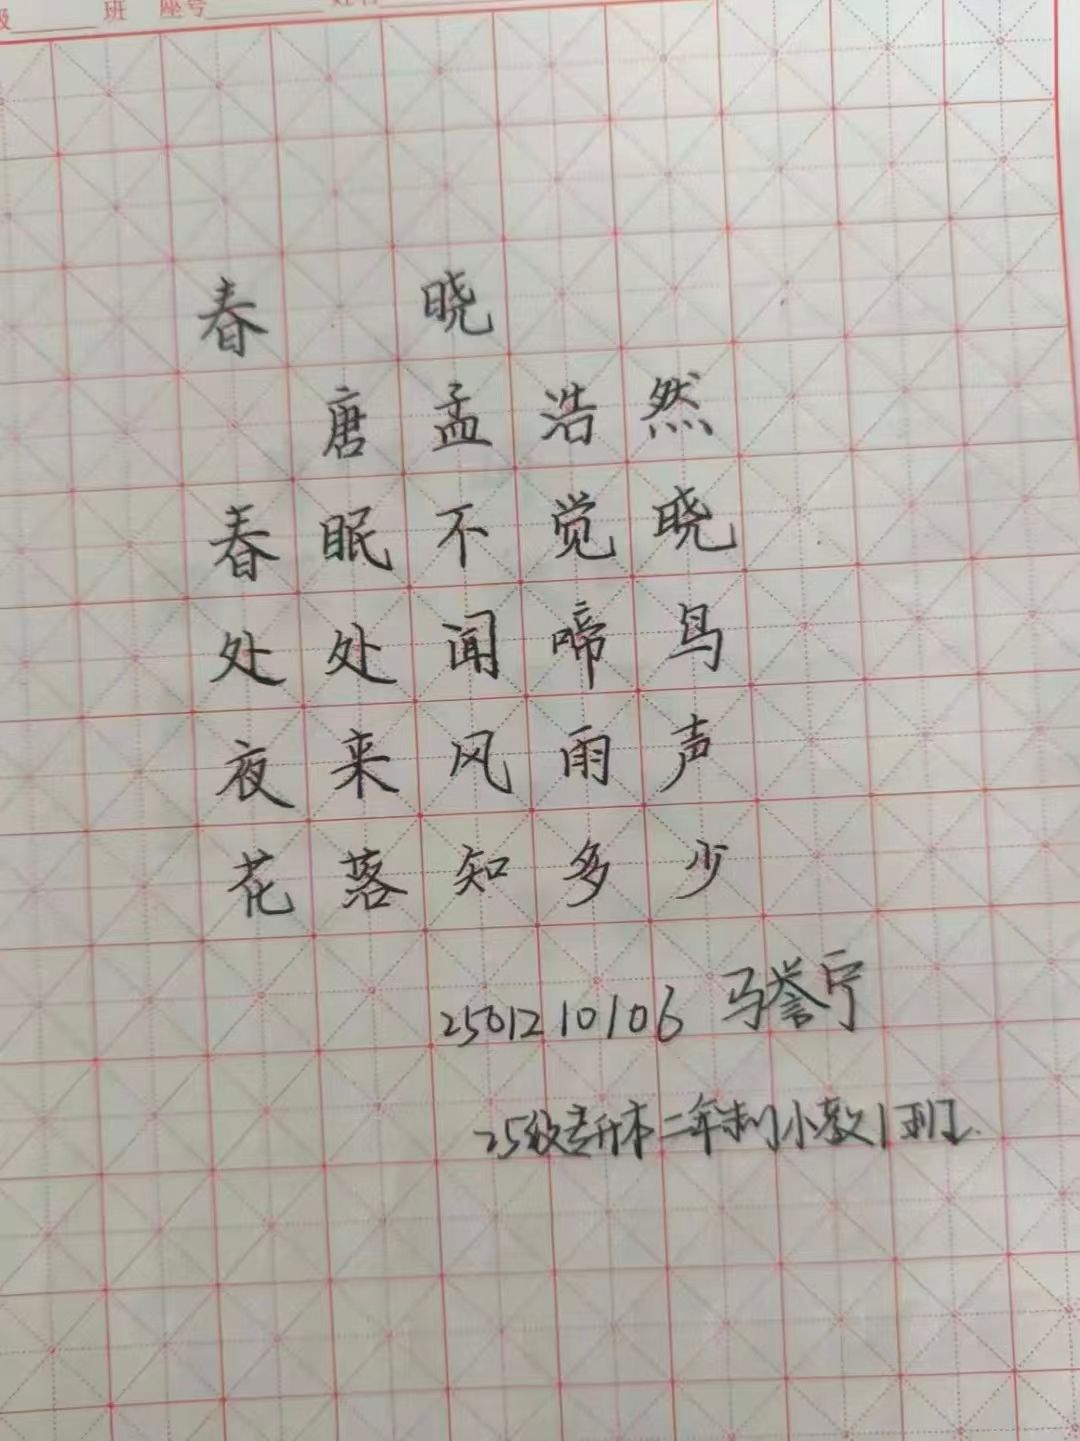 级 班 座号 姓名
春 晓
唐 孟 浩 然
春 眠 不 觉 晓
处 处 闻 啼 鸟
夜 来 风 雨 声
花 落 知 多 少
2501210106 马誉宁
25级专升本二年制小教1班